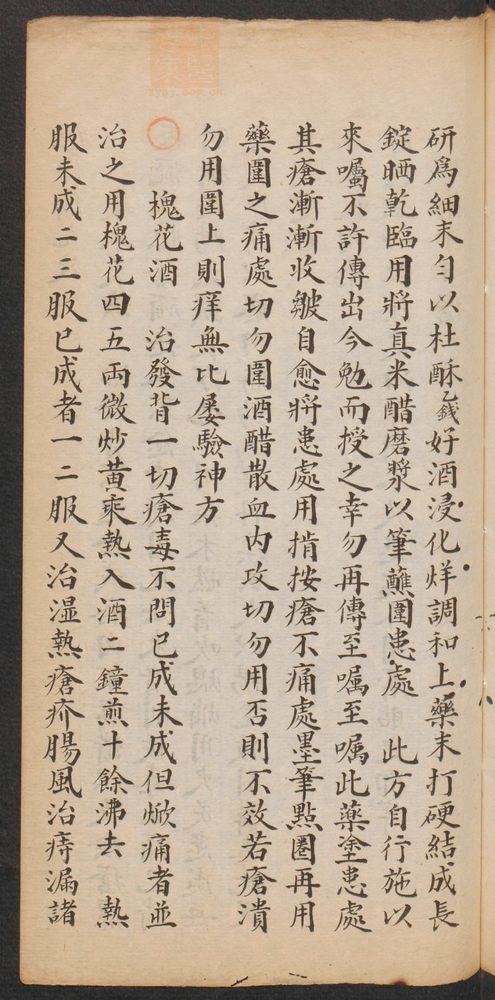 研為細末勻以杜酥乙錢好酒浸化烊調和上藥末打硬結成長
錠晒乾臨用將真米醋磨漿以筆蘸圍患處 此方自行施以
來囑不許傳出今勉而授之幸勿再傳至囑至囑此藥塗患處
其瘡漸漸收皺自愈將患處用指按瘡不痛處墨筆點圈再用
藥圍之痛處切勿圍酒醋散血內攻切勿用否則不效若瘡潰
勿用圍上則痒無比屡驗神方
槐花酒 治發背一切瘡毒不問已成未成但焮痛者並
治之用槐花四五両微炒黃乘熱入酒二鐘煎十餘沸去 熱
服未成二三服已成者一二服又治湿熱瘡疥腸風治痔漏諸